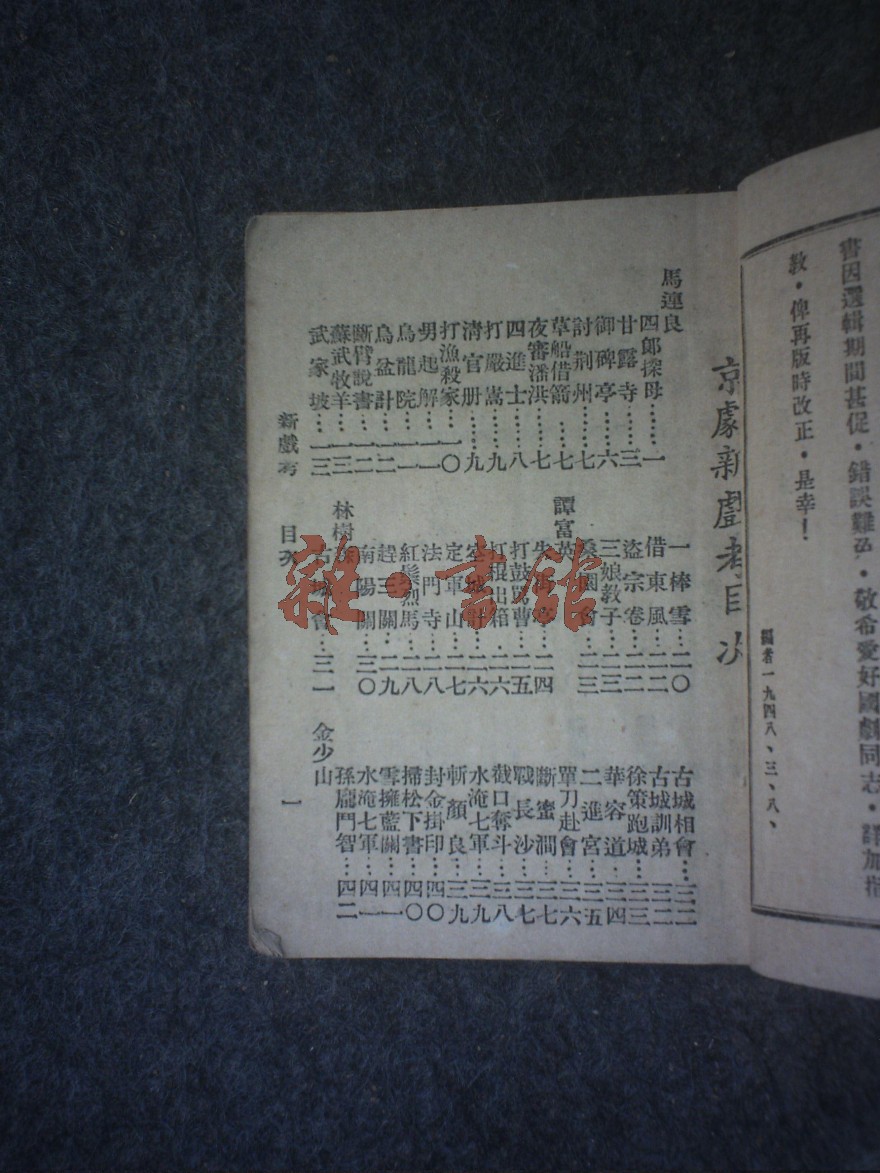 書因選輯期間甚促·錯誤難免·敬希愛好國劇同志·詳加指
教·俾再版時改正·是幸！
編者一九四八、三、八、
京劇新戲考目次
馬連良
四郎探母……一
甘露寺…三
御碑亭…六
討荆州…七
草船借箭…七
夜審潘洪…七
四進士…八
打嚴嵩…九
清官册…九
打漁殺家…一〇
男起解…一一
烏龍院…一一
烏盆計…一二
斷臂說書…一二
蘇武牧羊…一三
武家坡…一三
一棒雪…二〇
借東風…二二
盜宗卷…二二
三娘教子…二三
桑園會…二三
譚富英
失街亭…二四
打鼓罵曹…二五
打棍出箱…二六
空城計…二六
定軍山…二七
法門寺…二八
紅鬃烈馬…二八
趕三關…二九
南陽關…三〇
林樹森
古城會…三一
古城相會…三二
古城訓弟…三二
徐策跑城…三三
華容道…三四
二進宮…三五
單刀赴會…三六
斷蜜澗…三七
戰長沙…三七
截口奪斗…三八
水淹七軍…三九
斬顏良…三九
封金掛印…四〇
掃松下書…四〇
雪擁藍關…四一
水淹七軍…四一
孫龐鬥智…四二
金少山
新戲考 目次 一
雜·書館